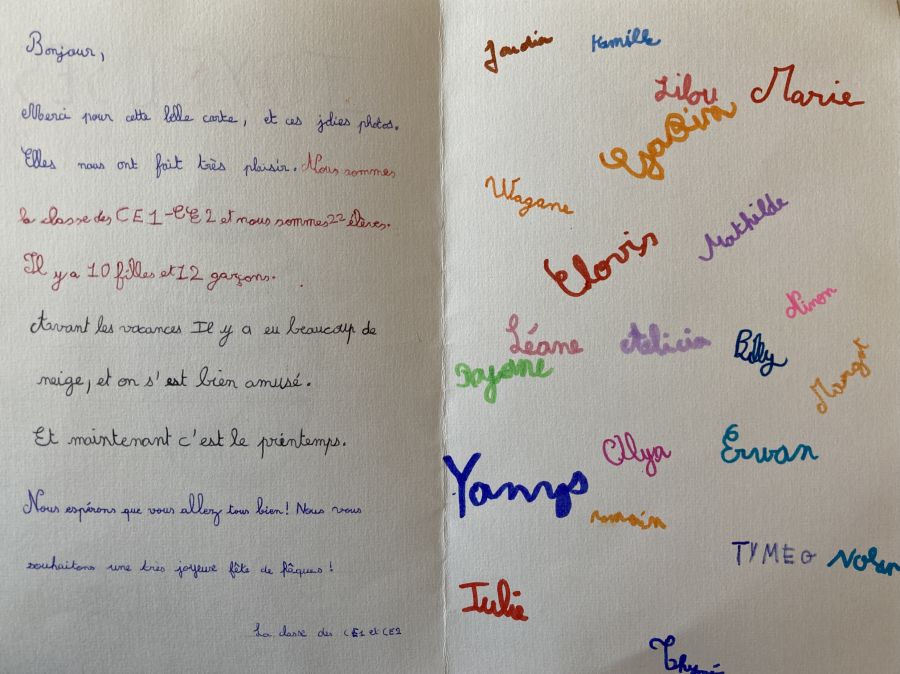 Bonjour,
Merci pour cette belle carte, et ces jolies photos.
Elles nous ont fait très plaisir. Nous sommes
la classe des CE1-CE2 et nous sommes 22 élèves.
Il y a 10 filles et 12 garçons.
Avant les vacances Il y a eu beaucoup de
neige, et on s'est bien amusé.
Et maintenant c'est le printemps.
Nous espérons que vous allez tous bien! Nous vous
souhaitons une très joyeuse fête de Pâques!
La classe des CE1 et CE2
Kamille
Lilou Marie
Wagane
Mathilde
Clovis
Ninon
Léane Billy
Margot
Erwan
Yanys
romain
TYMEO Nolan
Julie